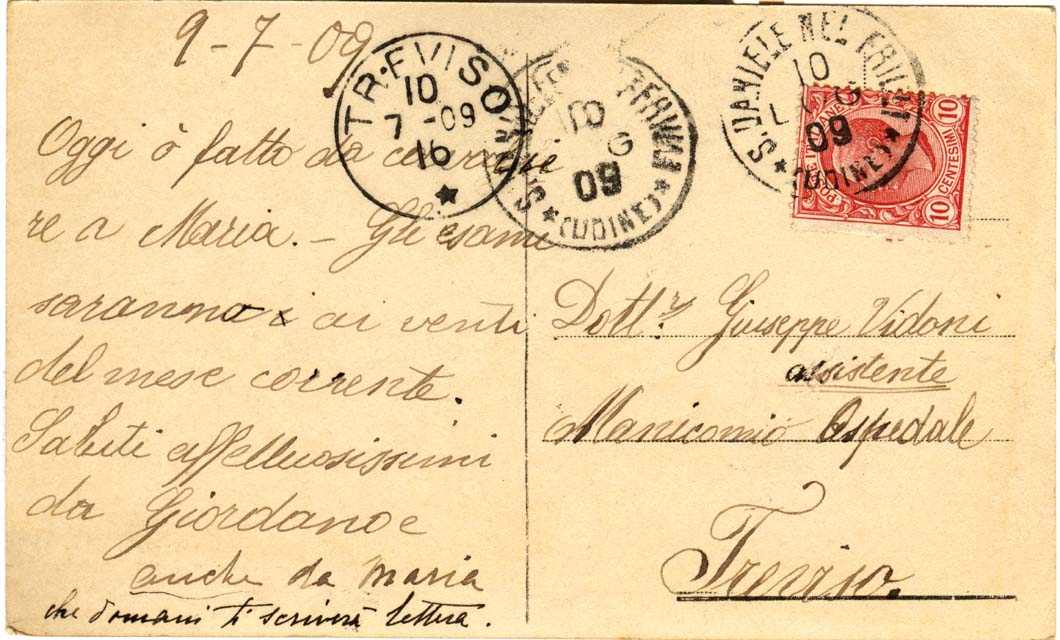 9-7-09
Oggi ò fatto da
re a Maria. – Gli esami
saranno x ai venti
del mese corrente.
Saluti affettuosissimi
da Giordano e
anche da Maria
che domani ti scriverà lettera.
TREVISO
10
7-09
16
10
09
(UDINE)
S. DANIELE NEL FRIULI
10
09
(UDINE)
POSTE ITALIANE
10 CENTESIMI 10
Dott.r Giuseppe Vidoni
assistente
Manicomio Ospedale
Treviso.